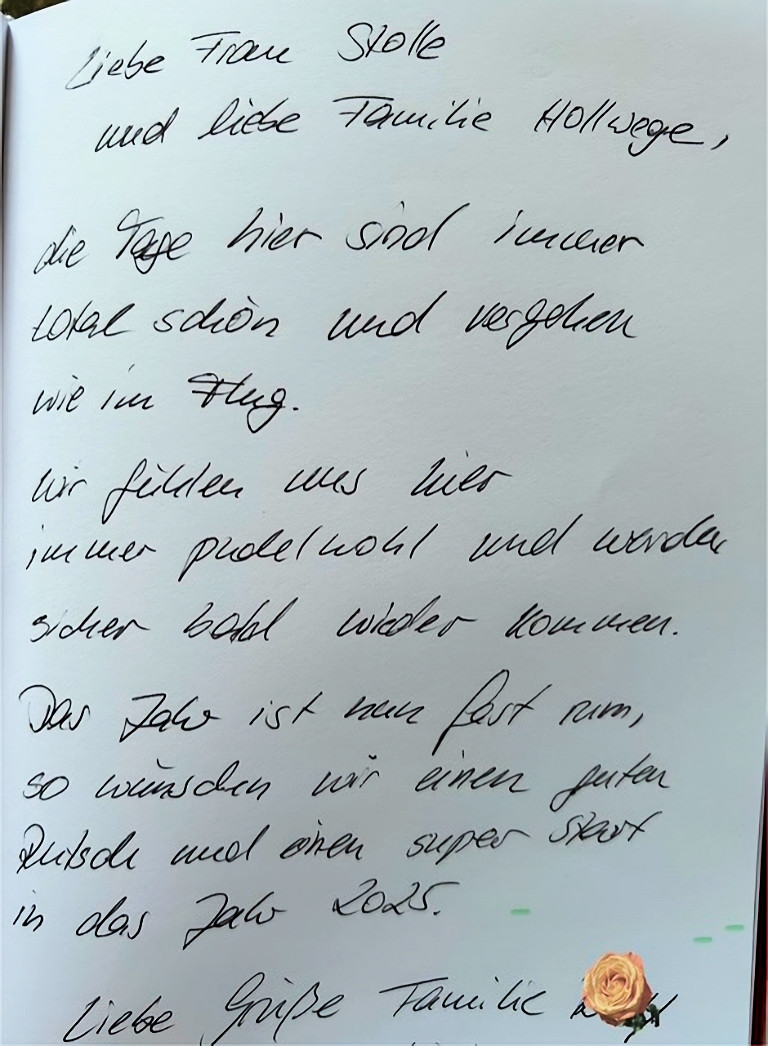 Liebe Frau Stolle
und liebe Familie Hollwege,
die Tage hier sind immer
total schön und vergehen
wie im Flug.
Wir fühlen uns hier
immer pudelwohl und werden
sicher bald wieder kommen.
Das Jahr ist nun fast rum,
so wünschen wir einen guten
Rutsch und einen super Start
in das Jahr 2025.
Liebe Grüße Familie